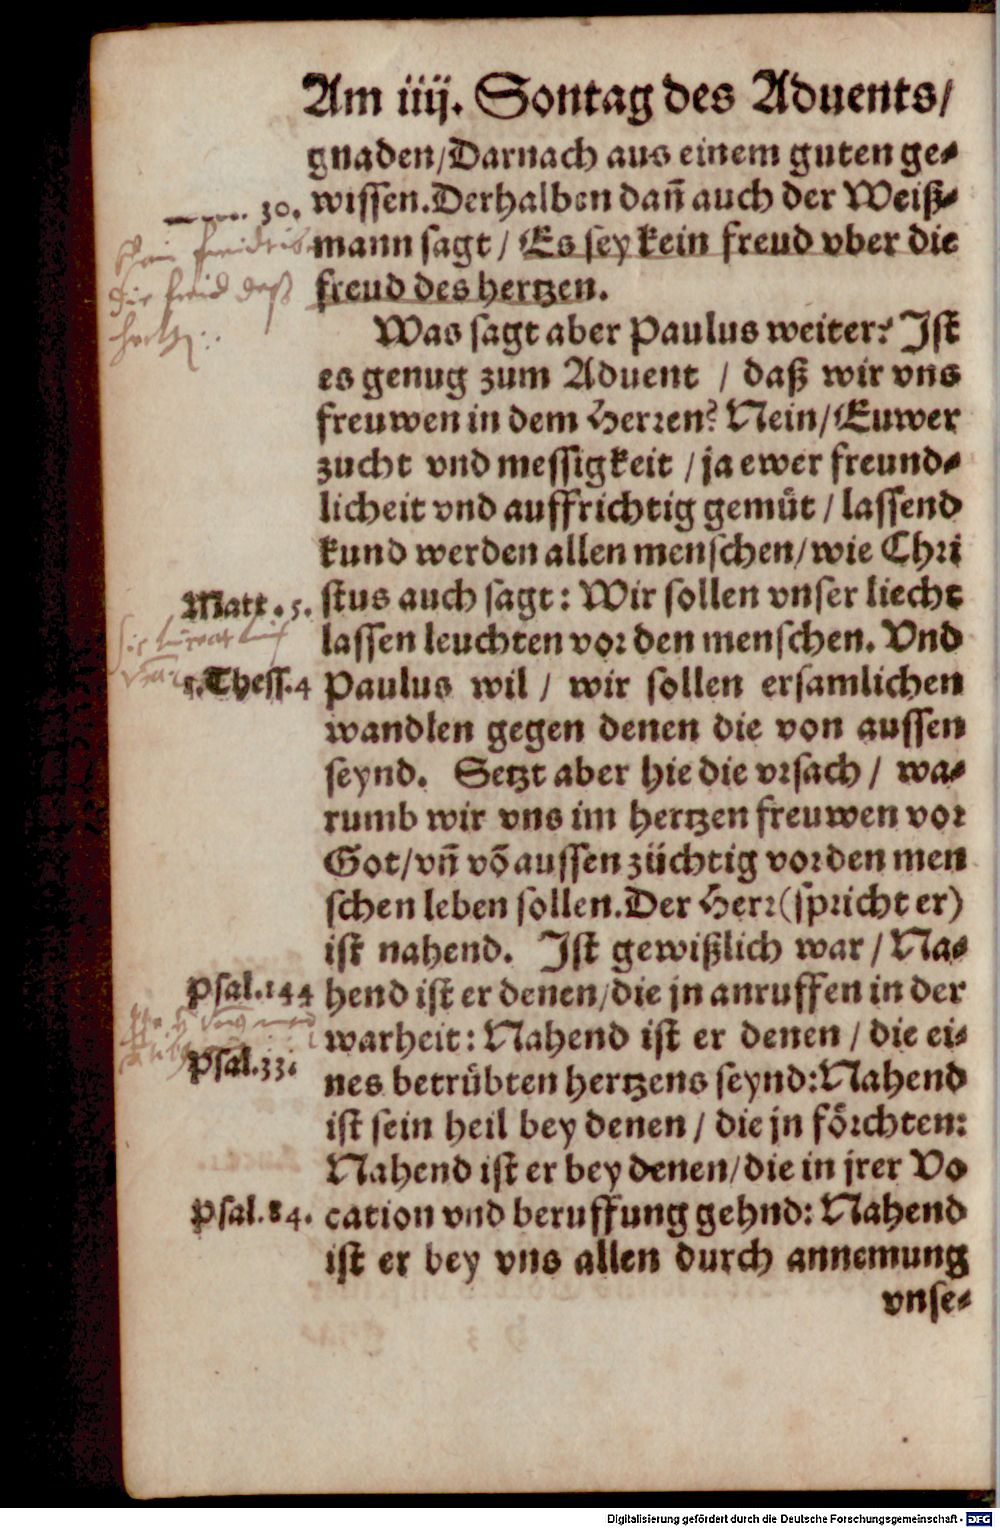 Am iiij. Sontag des Aduents/
gnaden/Darnach aus einem guten ge⸗
30. wissen.Derhalben dañ auch der Weiß⸗
mann sagt / Es sey kein freud vber die
freud des hertzen.
Was sagt aber Paulus weiter? Ist
es genug zum Aduent / daß wir vns
freuwen in dem Herren? Nein/Euwer
zucht vnd messigkeit / ja ewer freund⸗
licheit vnd auffrichtig gemüt / lassend
kund werden allen menschen/wie Chri
Matt. 5. stus auch sagt: Wir sollen vnser liecht
lassen leuchten vor den menschen. Vnd
1.Thess.4 Paulus wil / wir sollen ersamlichen
wandlen gegen denen die von aussen
seynd. Setzt aber hie die vrsach / wa⸗
rumb wir vns im hertzen freuwen vor
Got/vñ võ aussen züchtig vor den men
schen leben sollen.Der Herr(spricht er)
ist nahend. Ist gewißlich war / Na⸗
Psal.144 hend ist er denen/die jn anruffen in der
warheit: Nahend ist er denen / die ei⸗
Psal.33. nes betrübten hertzens seynd:Nahend
ist sein heil bey denen / die jn förchten:
Nahend ist er bey denen/die in jrer Vo
Psal.84. cation vnd beruffung gehnd: Nahend
ist er bey vns allen durch annemung
vnse⸗
Digitalisierung gefördert durch die Deutsche Forschungsgemeinschaft - DFG